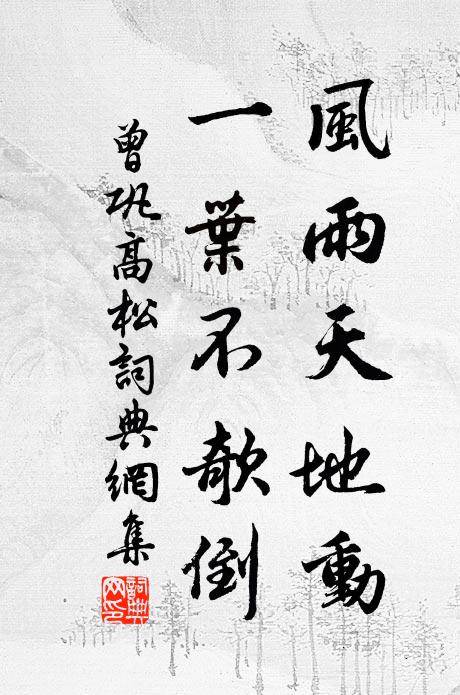 風雨天地動
一葉不欹倒
曾巩高松詞典網集
詞典